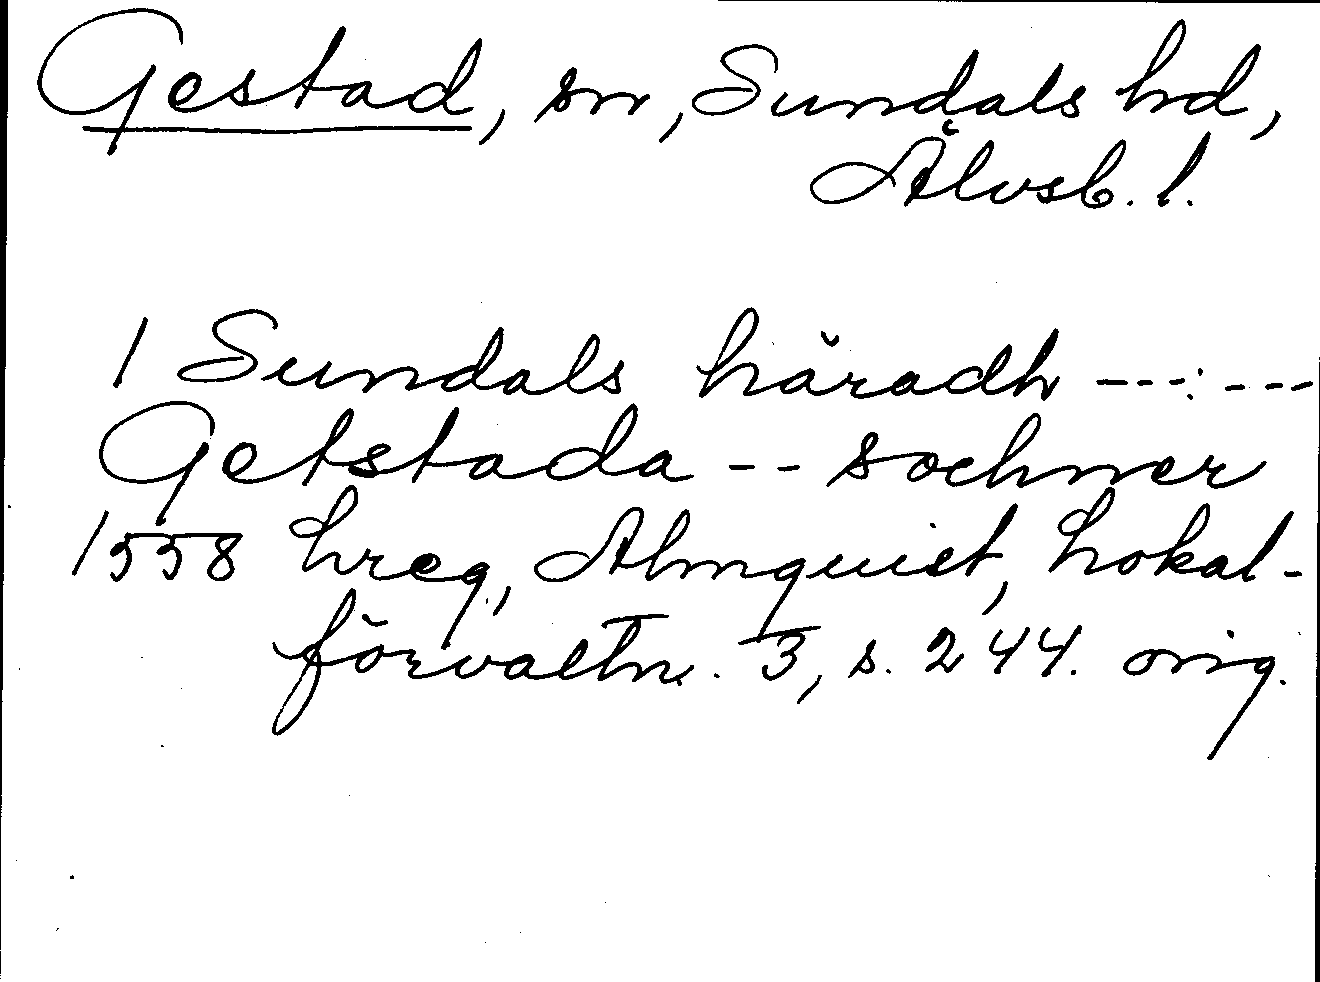 Gestad, sn, Sundals hd,
Älvsb. l.
I Sundals häradh ---:---
Getstada -- sochner
1558 hreg, Almquist, Lokal-
förvaltn. 3, s. 244. orig.